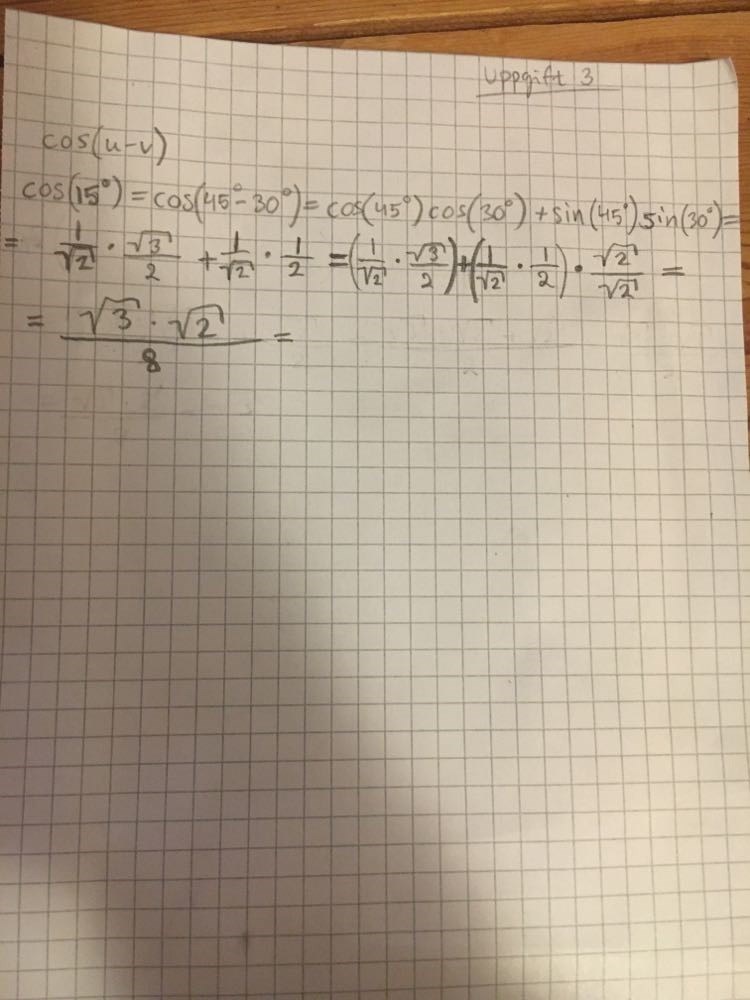 Uppgift 3
cos(u-v)
cos(15°) = cos(45°-30°) = cos(45°)cos(30°) + sin(45°)sin(30°) =
= 1/√2 · √3/2 + 1/√2 · 1/2 = (1/√2 · √3/2) + (1/√2 · 1/2) · √2/√2 =
= √3 · √2 / 8 =